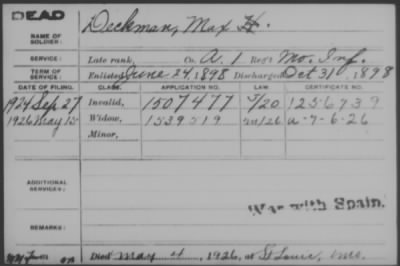 DEAD
NAME OF SOLDIER: Deckman, Max H.
SERVICE: Late rank, Co. A. 1 Reg't Mo. Inf.
TERM OF SERVICE: Enlisted June 24, 1898 Discharged Oct 31, 1898
DATE OF FILING. CLASS. APPLICATION NO. LAW CERTIFICATE NO.
1924 Sep 27 Invalid, 1507477 5/20 1256739
1926 May 15 Widow, 1539519 a-7-6-26
Minor,
ADDITIONAL SERVICES:
War with Spain.
REMARKS:
Died May 4, 1926, at St Louis, Mo.